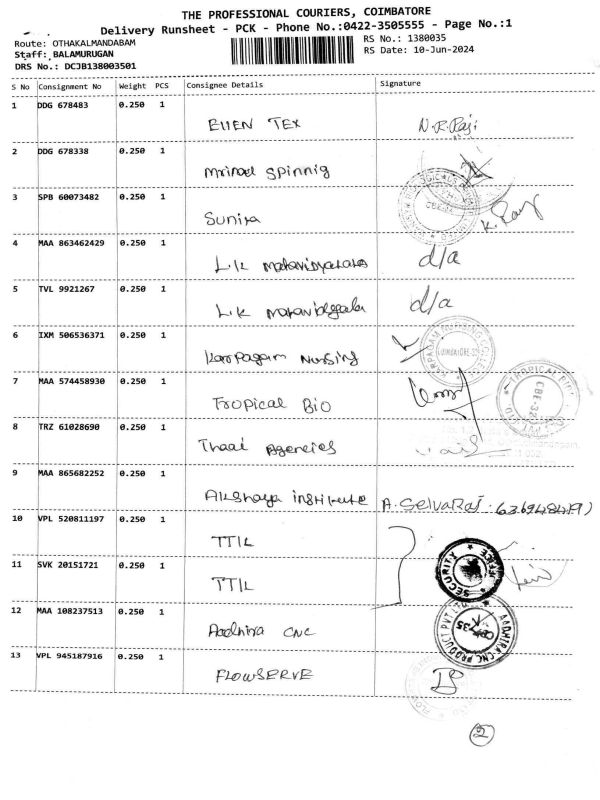 THE PROFESSIONAL COURIERS, COIMBATORE
Delivery Runsheet - PCK - Phone No.:0422-3505555 - Page No.:1
Route: OTHAKALMANDABAM
RS No.: 1380035
Staff: BALAMURUGAN
RS Date: 10-Jun-2024
DRS No.: DCJB138003501
S No Consignment No Weight PCS Consignee Details Signature
1 DDG 678483 0.250 1
Ellen TEX N.R.Raji
2 DDG 678338 0.250 1
Spinnig
3 SPB 60073482 0.250 1
Sunira K.
4 MAA 863462429 0.250 1
L.K d/a
5 TVL 9921267 0.250 1
L.K d/a
6 IXM 506536371 0.250 1
Karpagam Nursing KARPAGAM NURSING COIMBATORE
7 MAA 574458930 0.250 1
Tropical Bio TROPICAL CBE-32 PVT LTD
8 TRZ 61028690 0.250 1
Thaai Agencies
9 MAA 865682252 0.250 1
Akshaya institute A. Selvaraj
10 VPL 520811197 0.250 1
TTIL
11 SVK 20151721 0.250 1
TTIL SECURITY OFFICE
12 MAA 108237513 0.250 1
Aadhira CNC AADHIRA CNC PRODUCT PVT LTD
13 VPL 945187916 0.250 1
FLOWSERVE
2